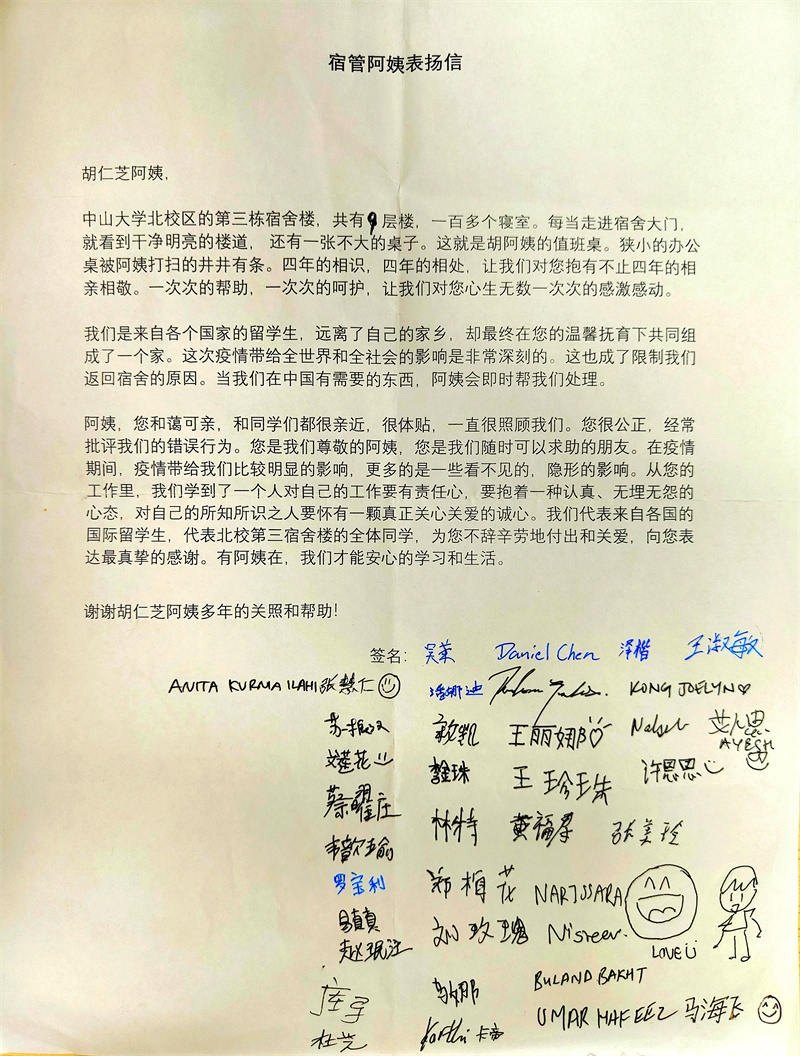 宿管阿姨表扬信
胡仁芝阿姨，
中山大学北校区的第三栋宿舍楼，共有9层楼，一百多个寝室。每当走进宿舍大门，
就看到干净明亮的楼道， 还有一张不大的桌子。这就是胡阿姨的值班桌。狭小的办公
桌被阿姨打扫的井井有条。四年的相识，四年的相处，让我们对您抱有不止四年的相
亲相敬。一次次的帮助，一次次的呵护，让我们对您心生无数一次次的感激感动。
我们是来自各个国家的留学生，远离了自己的家乡，却最终在您的温馨抚育下共同组
成了一个家。这次疫情带给全世界和全社会的影响是非常深刻的。这也成了限制我们
返回宿舍的原因。当我们在中国有需要的东西，阿姨会即时帮我们处理。
阿姨，您和蔼可亲，和同学们都很亲近，很体贴，一直很照顾我们。您很公正，经常
批评我们的错误行为。您是我们尊敬的阿姨，您是我们随时可以求助的朋友。在疫情
期间，疫情带给我们比较明显的影响，更多的是一些看不见的，隐形的影响。从您的
工作里，我们学到了一个人对自己的工作要有责任心，要抱着一种认真、无埋无怨的
心态，对自己的所知所识之人要怀有一颗真正关心关爱的诚心。我们代表来自各国的
国际留学生，代表北校第三宿舍楼的全体同学，为您不辞辛劳地付出和关爱，向您表
达最真挚的感谢。有阿姨在，我们才能安心的学习和生活。
谢谢胡仁芝阿姨多年的关照和帮助！
签名： Daniel Chen 泽楷 王淑敏
ANITA KURMA ILAHI 张慧仁 KONG JOELYN
王丽娜 AYESH
莲花 金珠 王珍珠 许思思
蔡曜庄 林特 张美玲
罗宝利 郑梅花 NARISSARA
刘玫瑰 Nisreen. LOVE
BULAND BAKHT
杜兰 卡帝 UMAR HAFEEZ 马海飞